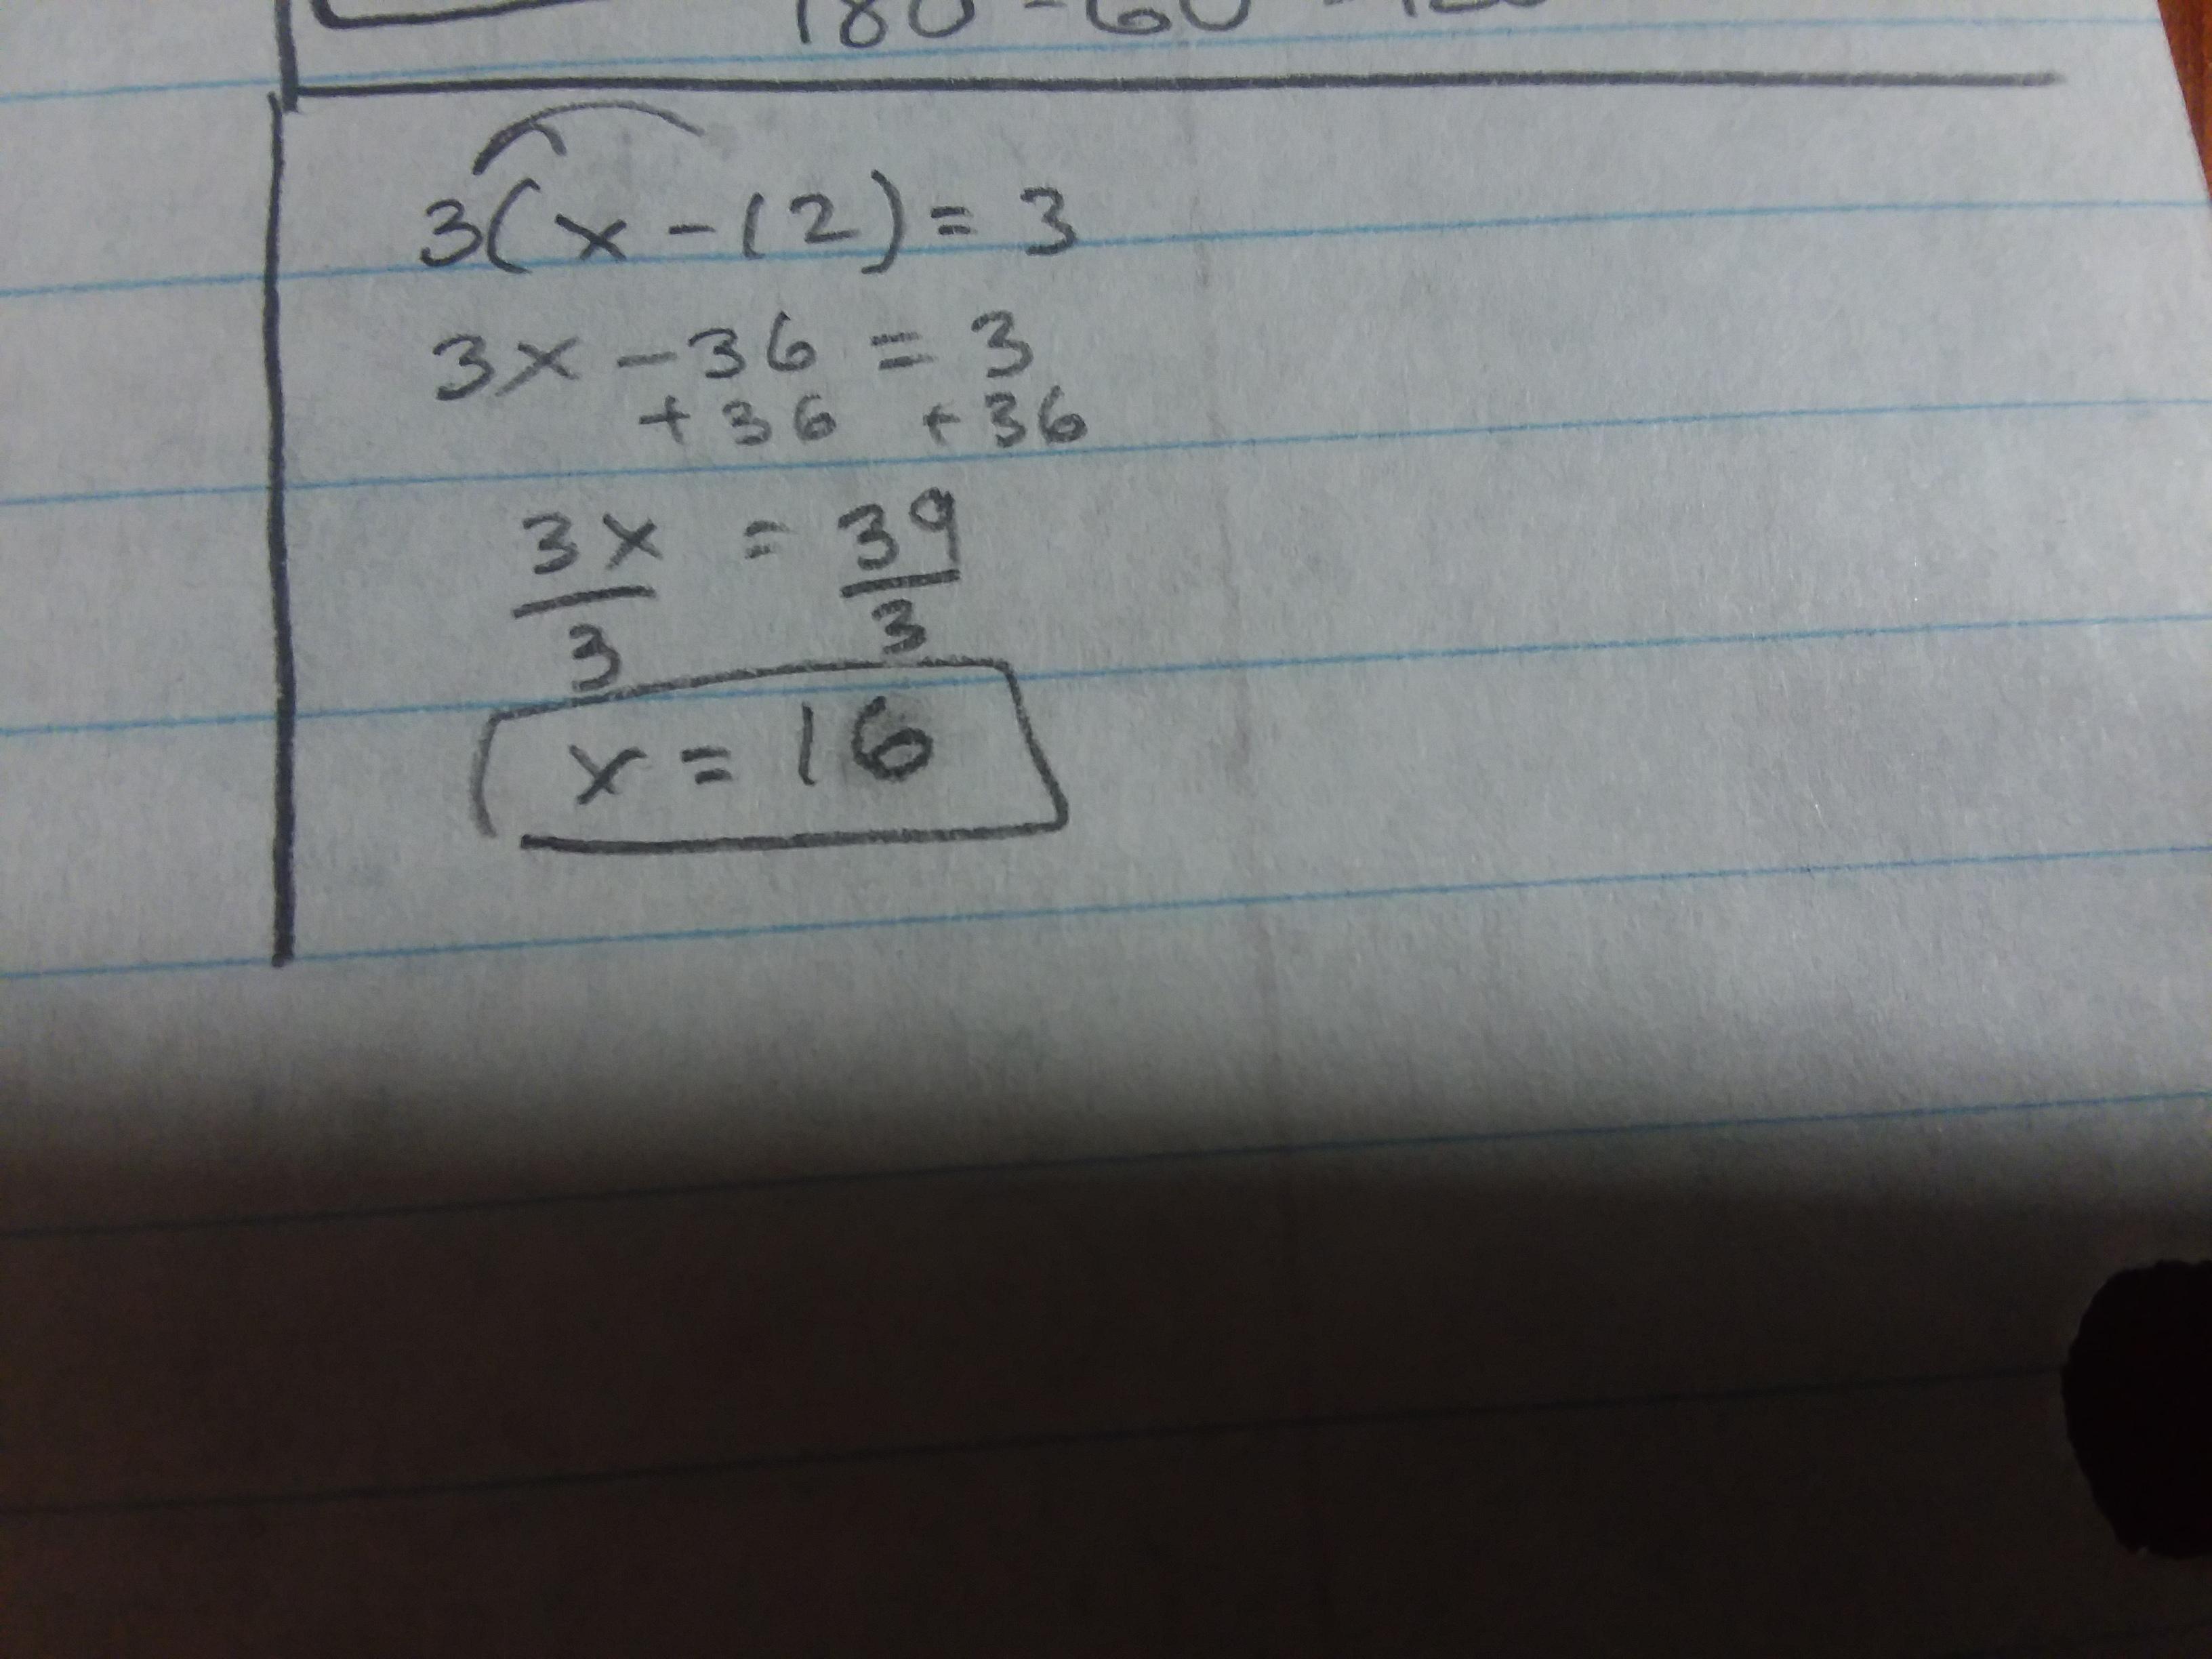 180 - 60
3(x - 12) = 3
3x - 36 = 3
+36 +36
3x = 39
3 3
x = 16